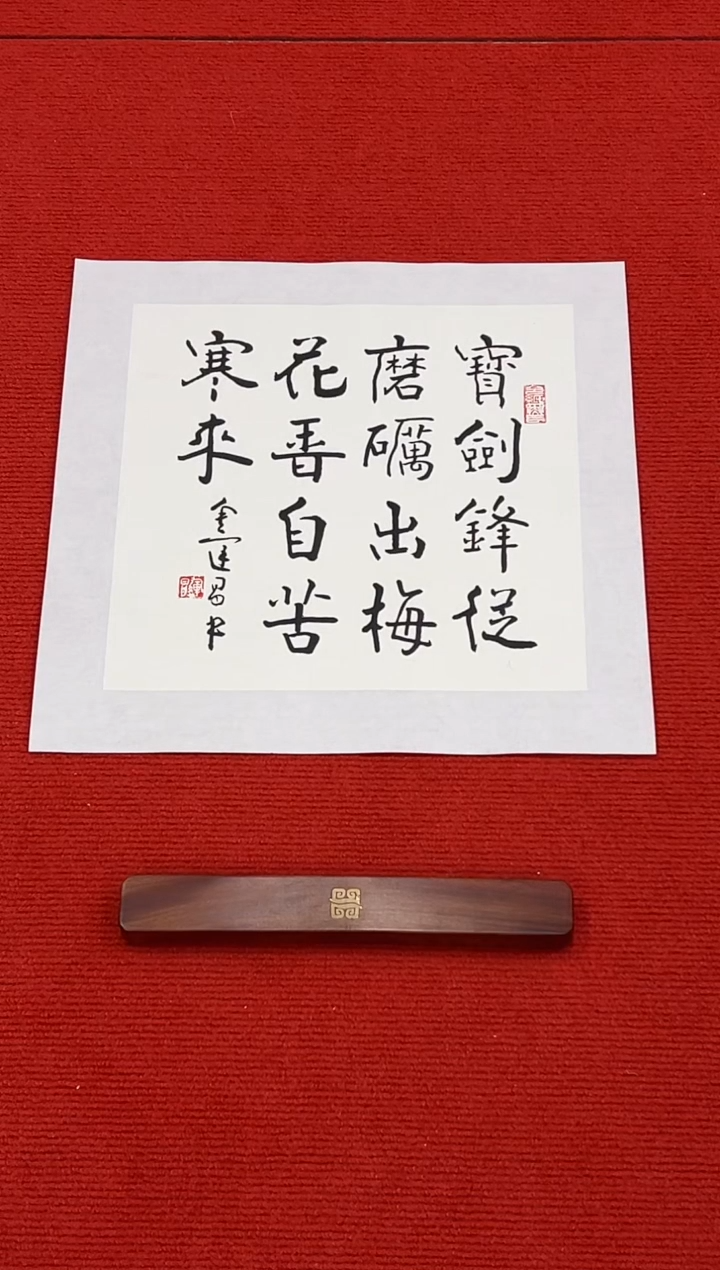 寶劍鋒從
磨礪出梅
花香自苦
寒來
金運昌书